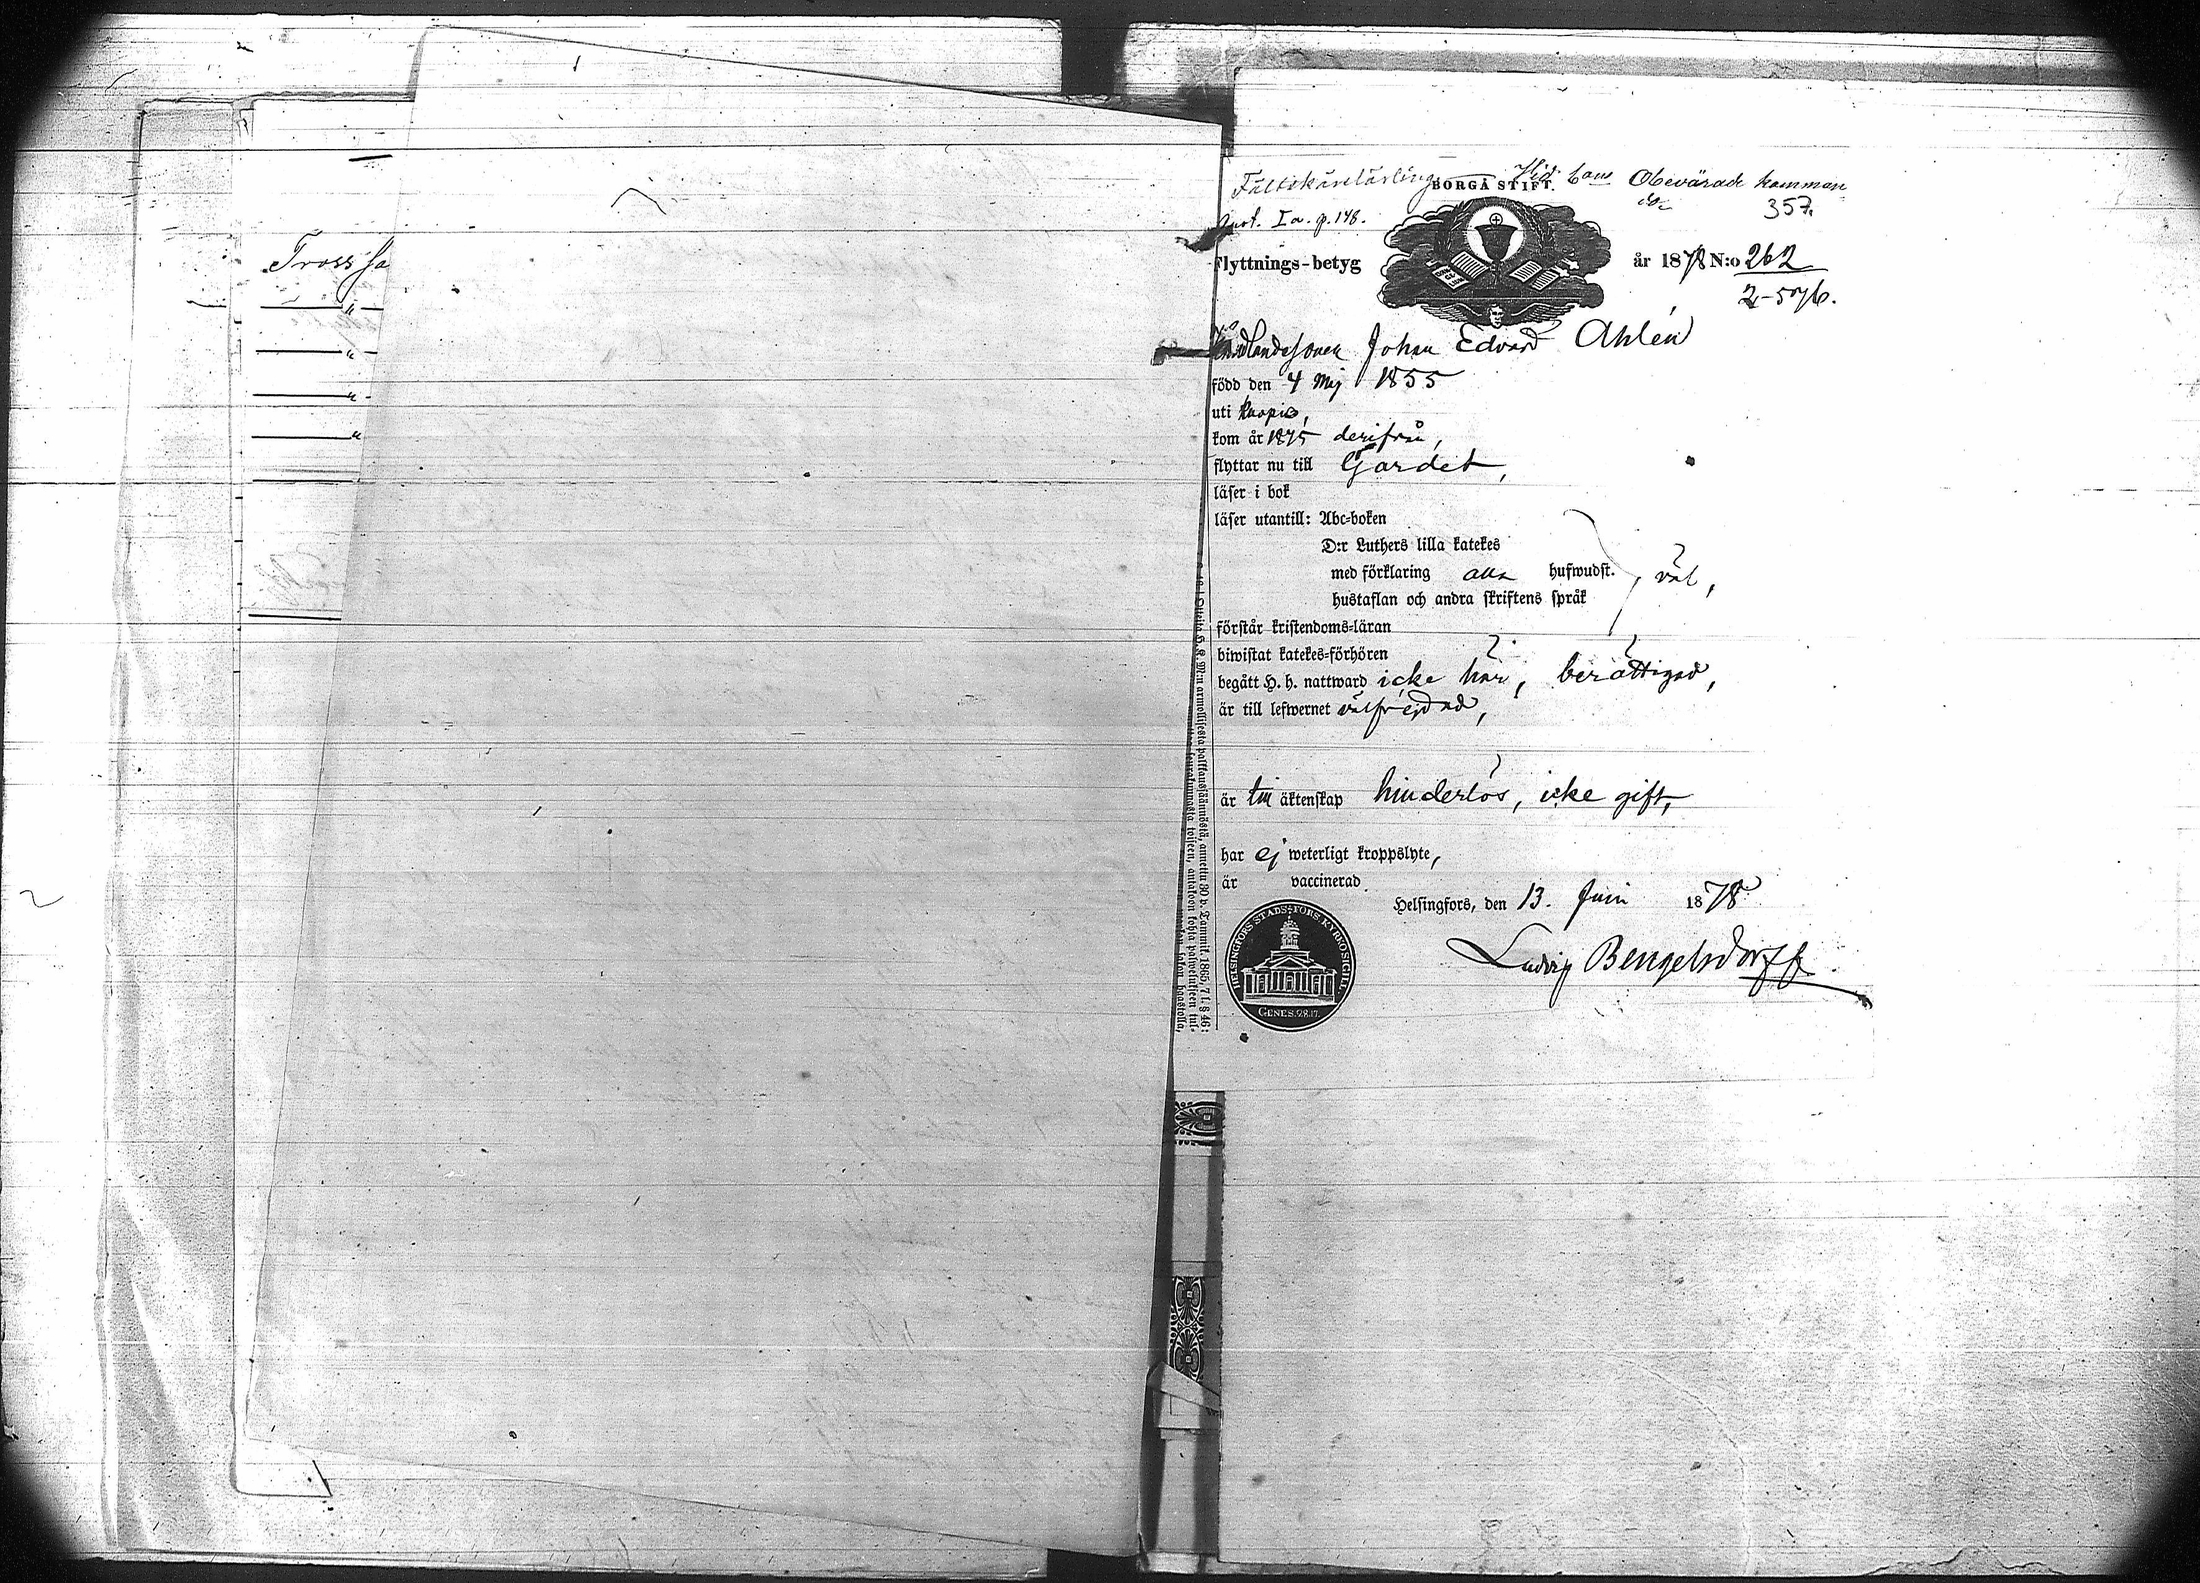 Tross
Fältskärslärling Vid bans Obevärade komman
BORGÅ STIFT.
357.
Anst. I a. p. 148.
Flyttnings-betyg
år 1878 N:o 262
2-576.
Johan Edvard Ahlén
född den 4 Maj 1855
uti Kuopio,
kom år 1875 derifrån,
flyttar nu till Gardet,
läser i bok
läser utantill: Abc-boken
D:r Luthers lilla katekes
med förklaring alla hufwudst. väl,
hustaflan och andra skriftens språk
förstår kristendoms-läran
biwistat katekes-förhören
begått H. h. nattward icke här, berättigad,
är till lefwernet välfrejdad,
är till äktenskap hinderlös, icke gift,
har ej weterligt kroppslyte,
är vaccinerad
Helsingfors, den 13. Juni 1878
Ludvig Bengelsdorff
HELSINGFORS STADS-FÖRS. KYRKO SIGILL.
GENES. 28. 17.
armollisesta palkkaussäännöstä, annettu 30 p. Tammik. 1865, 7 l. § 46: